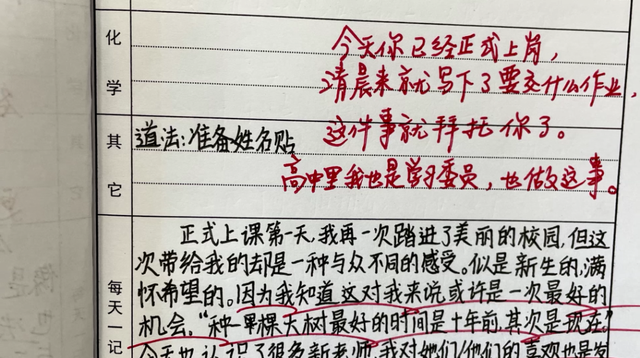 化学
今天你已经正式上岗，
清晨来就写下了要交什么作业，
这件事就拜托你了。
其它
道法：准备姓名贴
高中里我也是学习委员，也做这事。
每天一记
正式上课第一天，我再一次踏进了美丽的校园，但这
次带给我的却是一种与众不同的感受。似是新生的，满
怀希望的。因为我知道这对我来说或许是一次最好的
机会，“种一棵大树最好的时间是十年前，其次是现在”
今天也认识了很多新老师，我对她们/他们的喜欢也是发